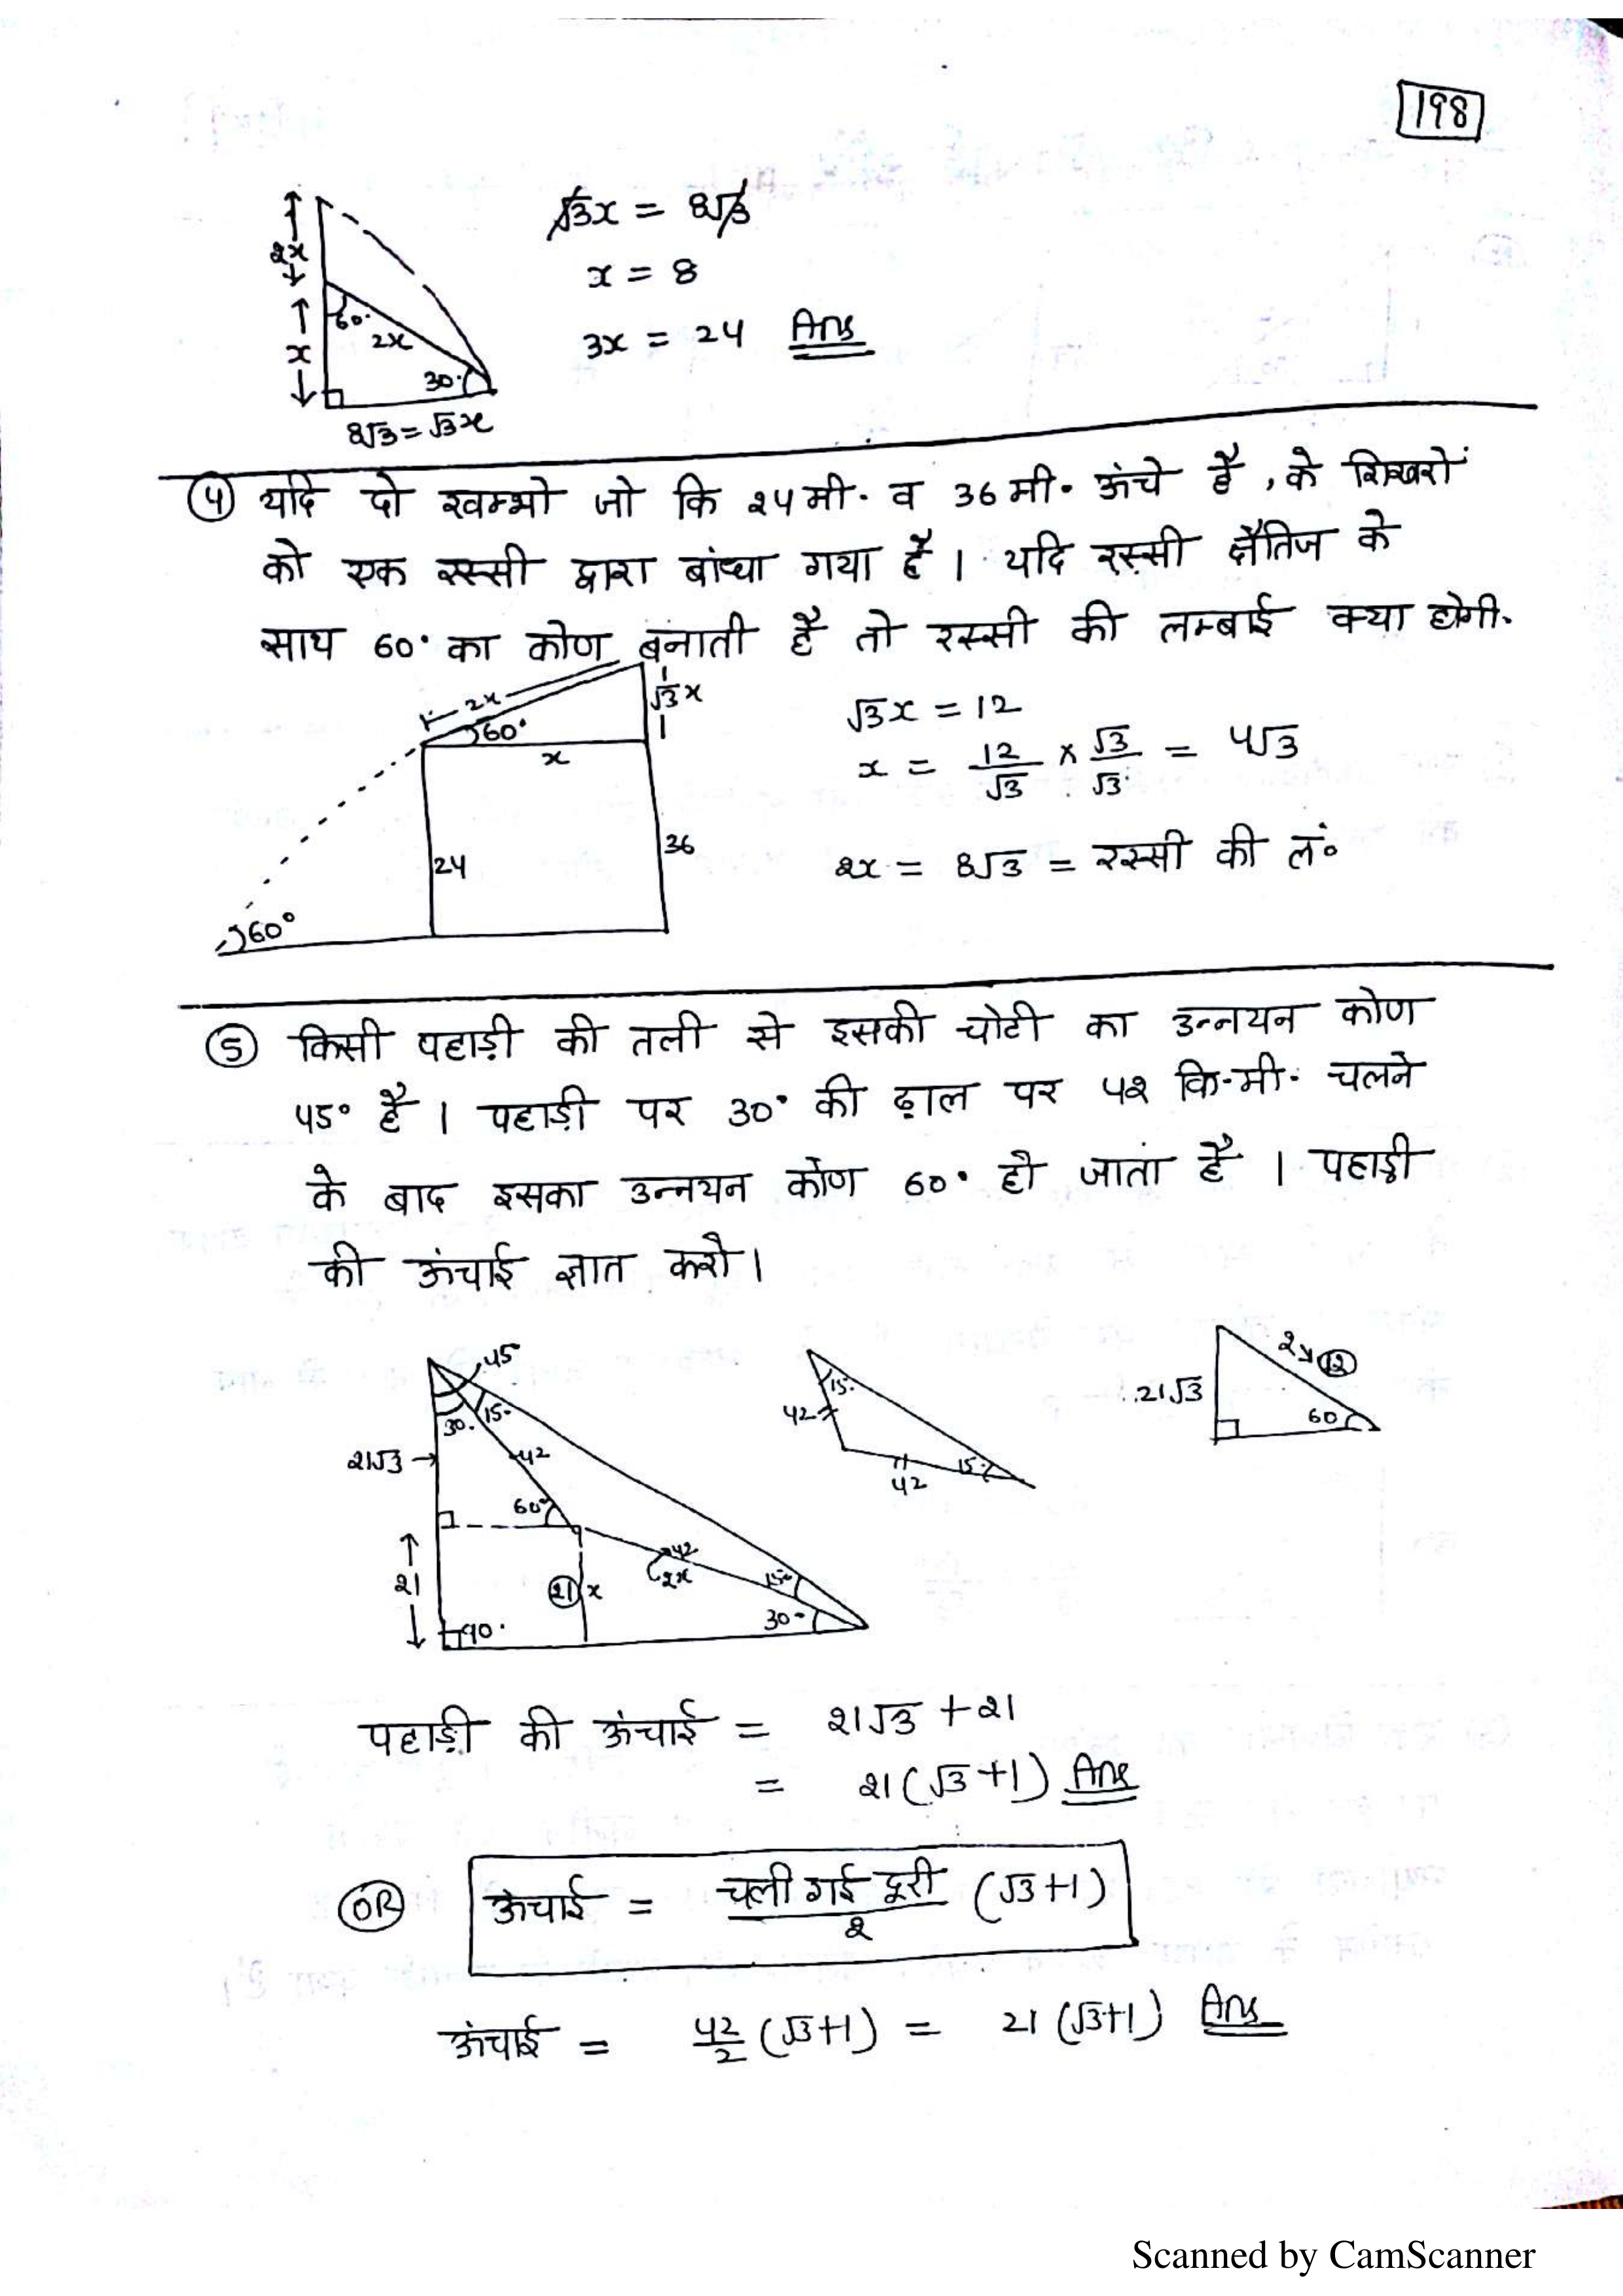 198
2x
x
60°
2x
30°
8√3 = √3x
√3x = 8√3
x = 8
3x = 24 Ans
④ यदि दो खम्भो जो कि 24 मी. व 36 मी. ऊंचे है, के शिखरों
को एक रस्सी द्वारा बांधा गया है। यदि रस्सी क्षैतिज के
साथ 60° का कोण बनाती है तो रस्सी की लम्बाई क्या होगी.
2x
60°
x
√3x
24
36
60°
√3x = 12
x = 12/√3 × √3/√3 = 4√3
2x = 8√3 = रस्सी की लं०
⑤ किसी पहाड़ी की तली से इसकी चोटी का उन्नयन कोण
45° है। पहाड़ी पर 30° की ढ़ाल पर 42 कि.मी. चलने
के बाद इसका उन्नयन कोण 60° हो जाता है। पहाड़ी
की ऊंचाई ज्ञात करो।
45°
30°
15°
21√3
42
60°
21
21
x
42
2x
15°
30°
90°
15°
42
42
15°
21√3
60
पहाड़ी की ऊंचाई = 21√3 + 21
= 21(√3+1) Ans
OR
ऊंचाई = चली गई दूरी/2 (√3+1)
ऊंचाई = 42/2 (√3+1) = 21 (√3+1) Ans
Scanned by CamScanner